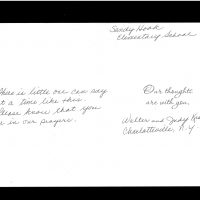 Sandy Hook
Elementary School
There is little one can say
at a time like this.
Please know that you
are in our prayers.
Our thoughts
are with you,
Walter and Judy
Charlotteville, N.Y.